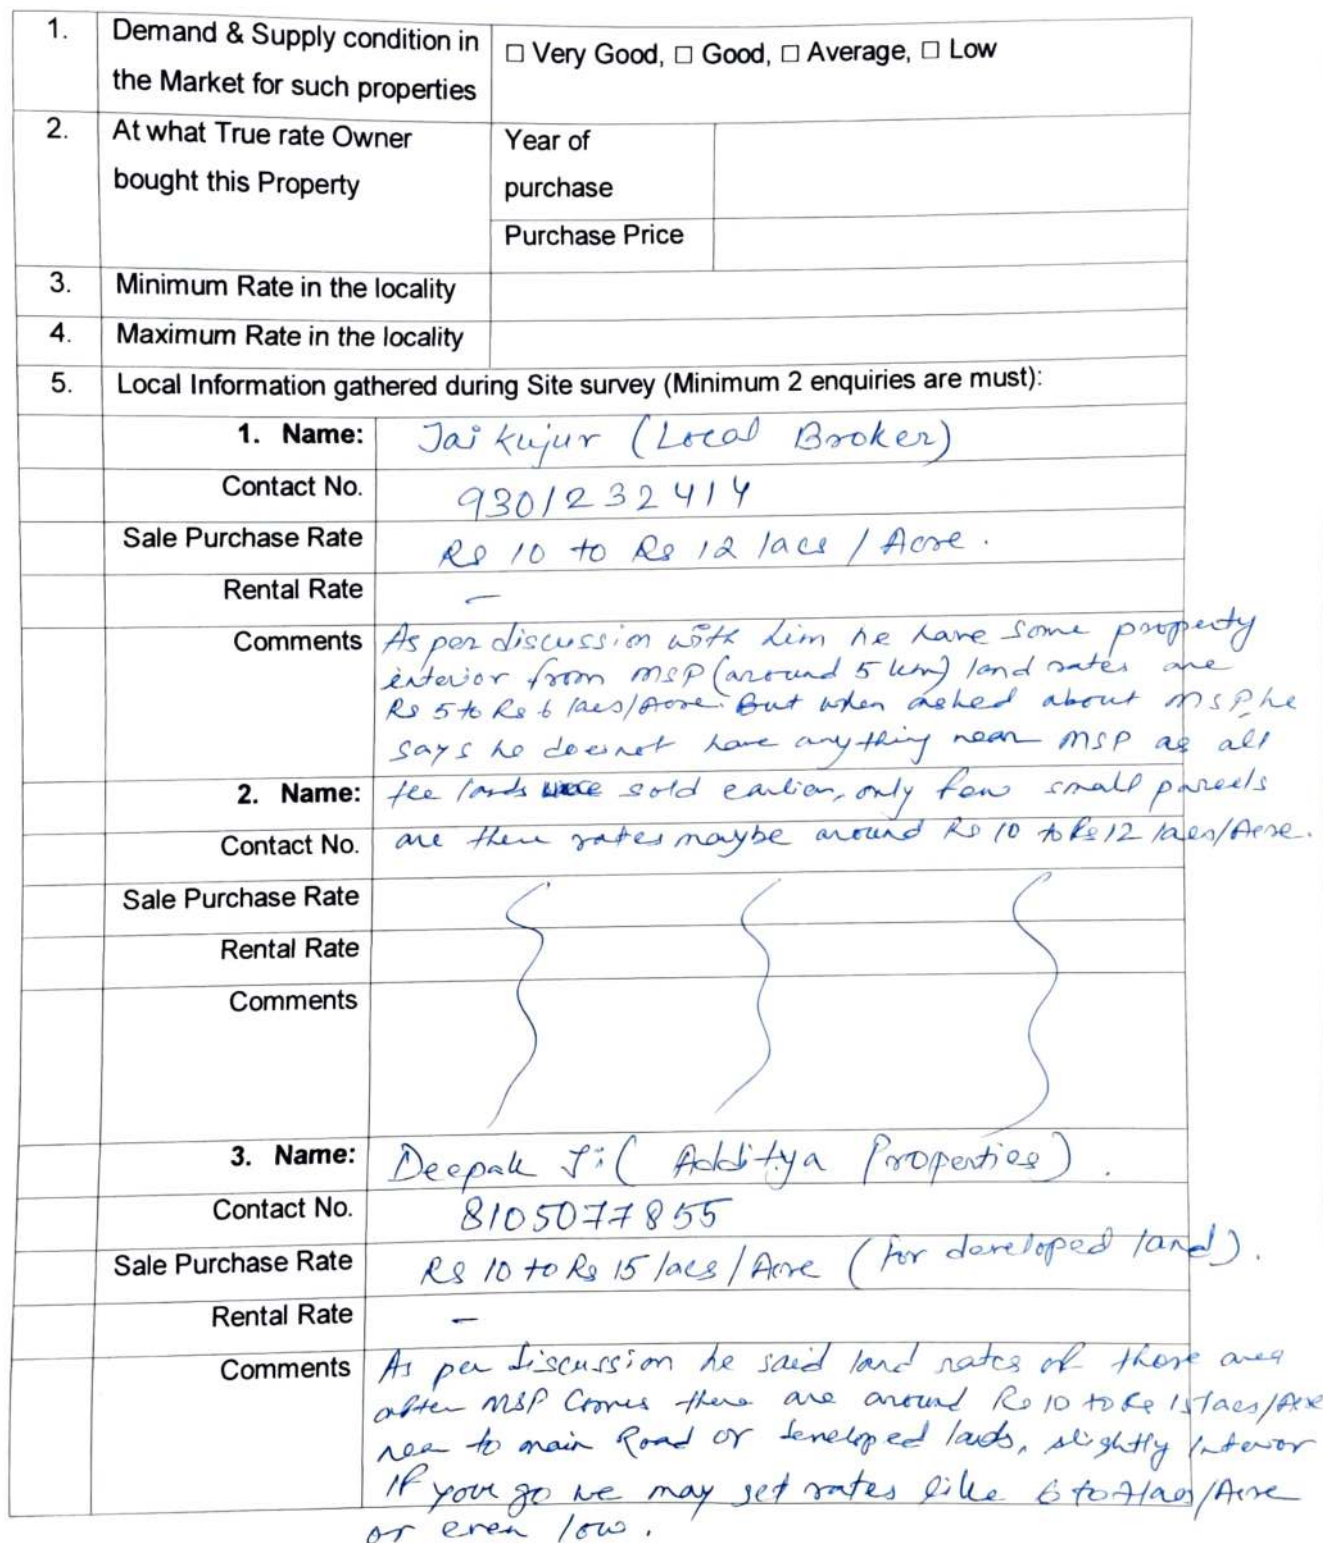 1. Demand & Supply condition in the Market for such properties □ Very Good, □ Good, □ Average, □ Low
2. At what True rate Owner bought this Property
Year of purchase
Purchase Price
3. Minimum Rate in the locality
4. Maximum Rate in the locality
5. Local Information gathered during Site survey (Minimum 2 enquiries are must):
1. Name: Jai Kujur (Local Broker)
Contact No. 9301232414
Sale Purchase Rate Rs 10 to Rs 12 lacs / Acre.
Rental Rate –
Comments As per discussion with him he have some property
interior from MSP (around 5 km) land rates are
Rs 5 to Rs 6 lacs/Acre. But when asked about MSP he
says he doesnot have anything near MSP as all
2. Name: the lands were sold earlier, only few small parcels
Contact No. are there rates maybe around Rs 10 to Rs 12 lacs/Acre.
Sale Purchase Rate
Rental Rate
Comments
3. Name: Deepak Ji ( Additya Properties).
Contact No. 8105077855
Sale Purchase Rate Rs 10 to Rs 15 lacs / Acre (for developed land).
Rental Rate –
Comments As per discussion he said land rates of those area
after MSP comes there are around Rs 10 to Rs 15 lacs/Acre
near to main Road or developed lands, slightly interior
If you go we may get rates like 6 to 7 lacs/Acre
or even low.